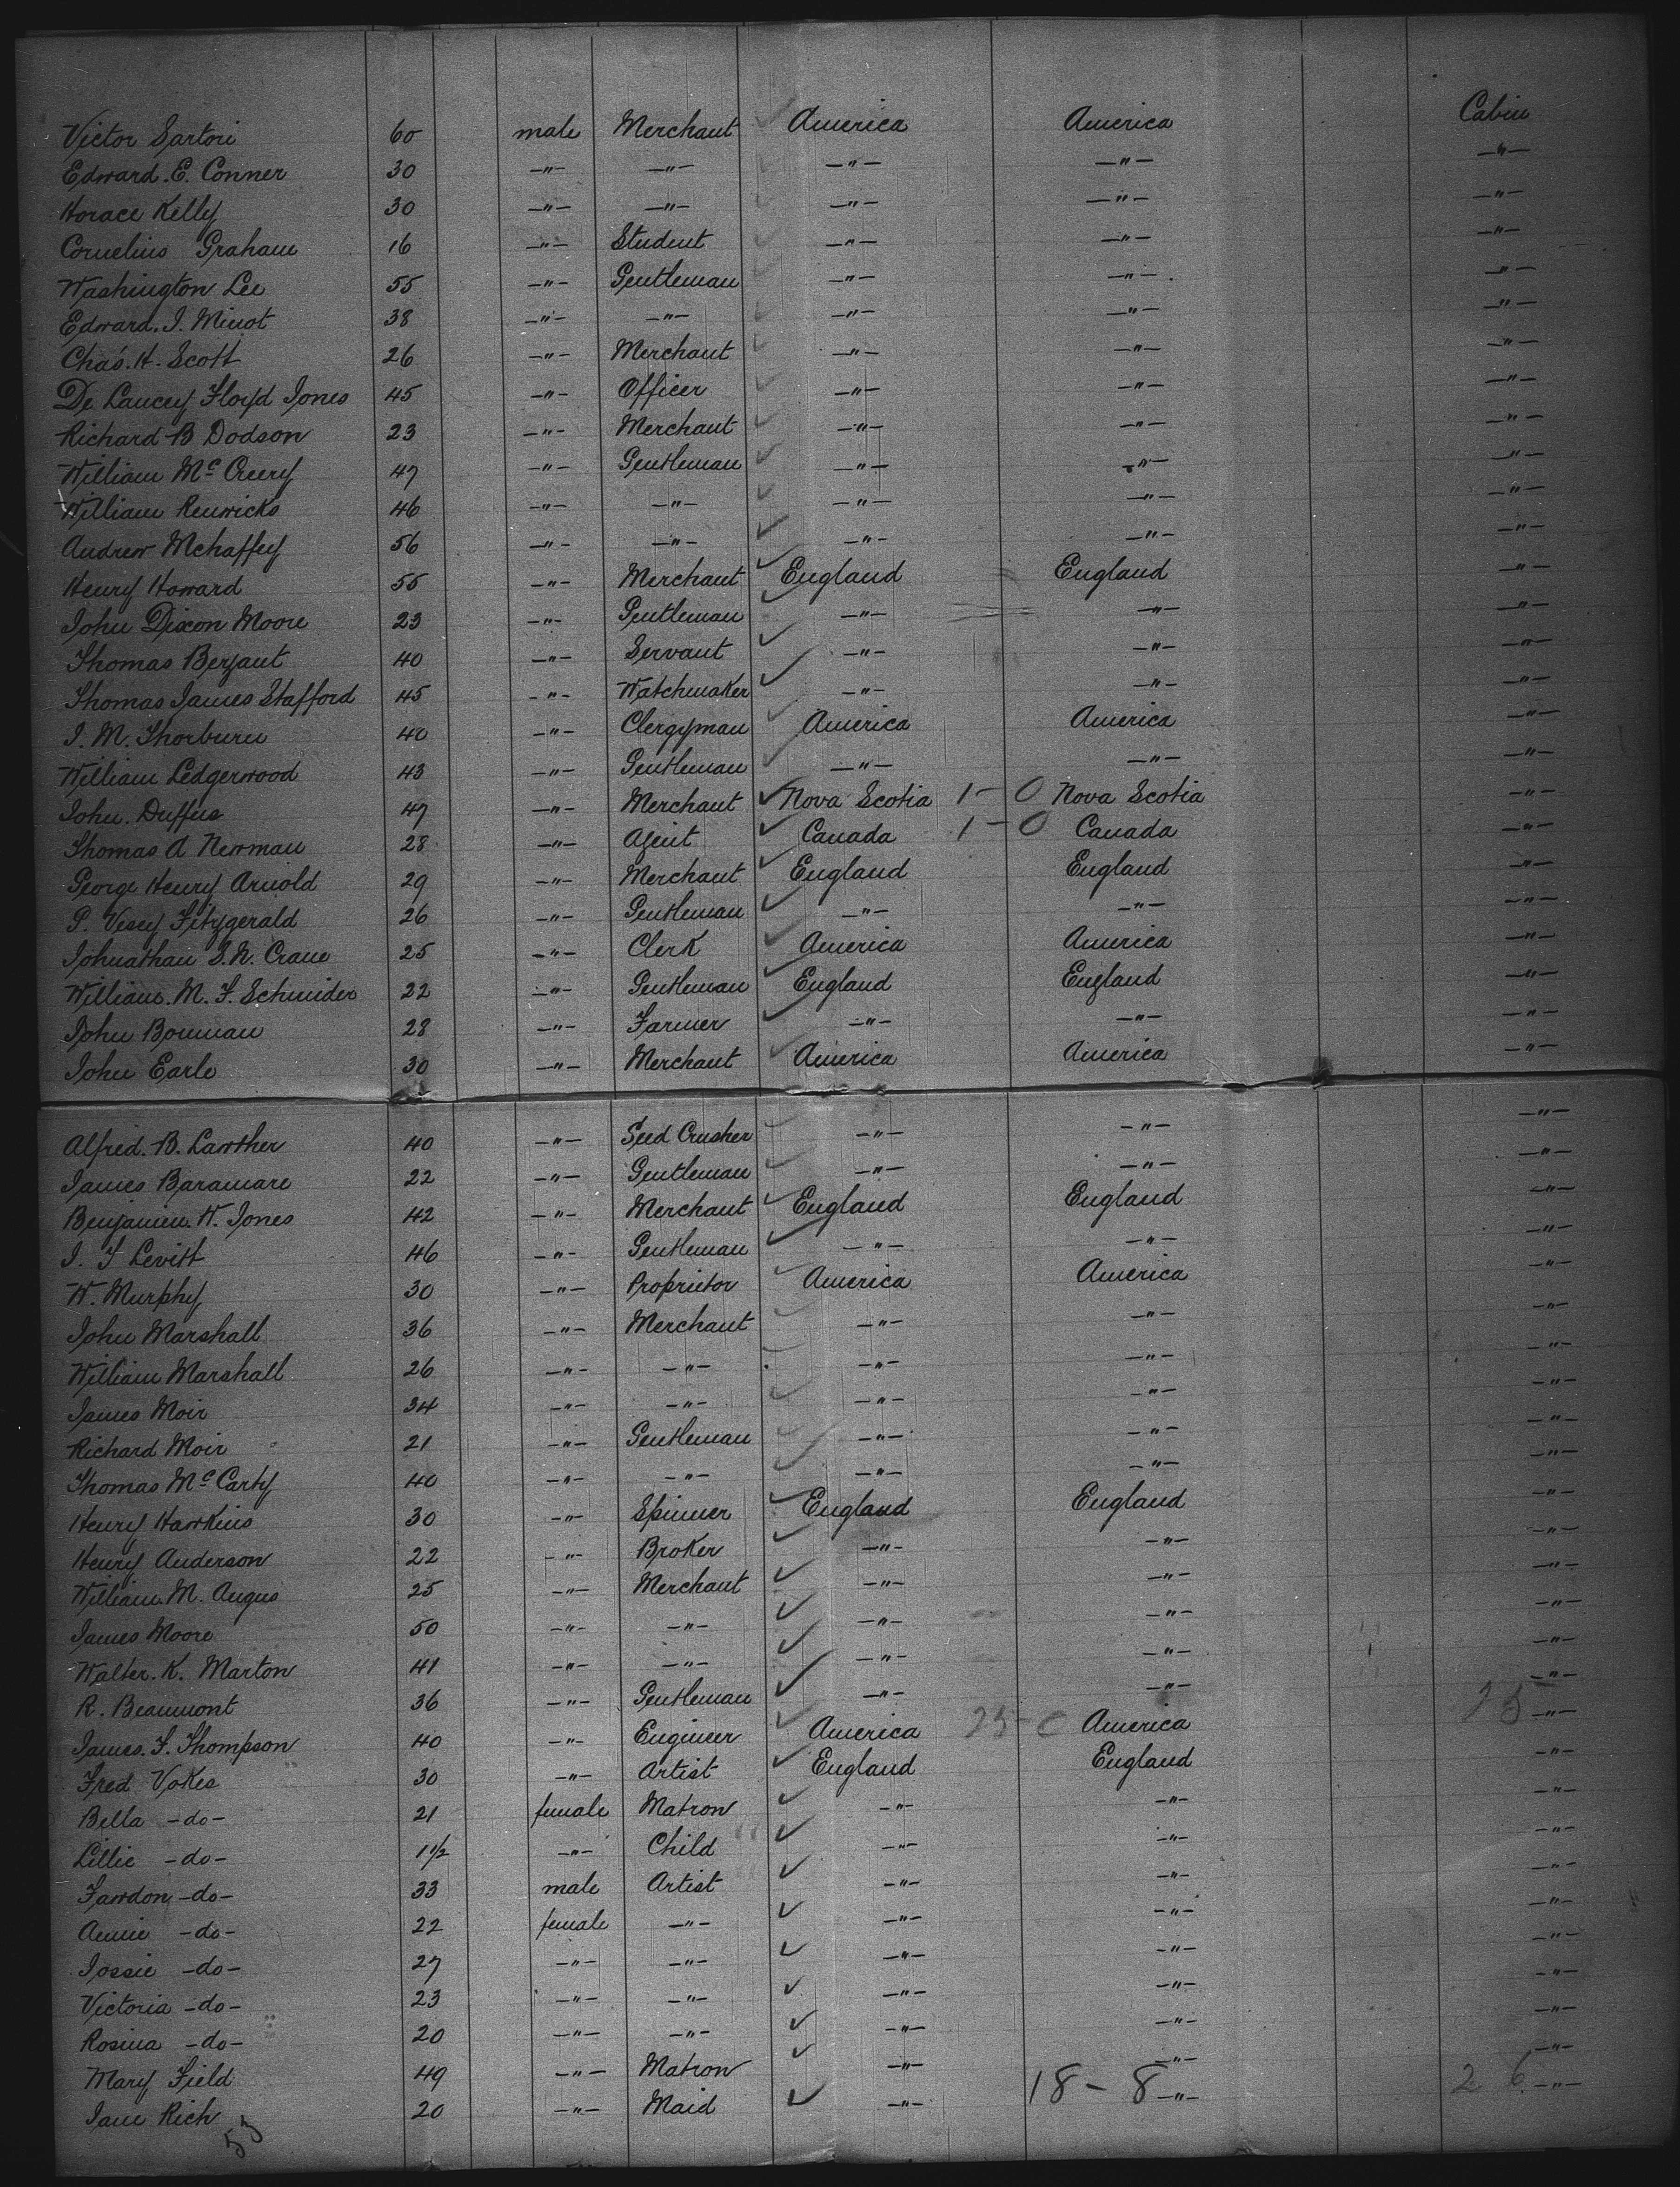 Victor Sartori 60 male Merchant America America Cabin
Edward. E. Conner 30 -"- -"- -"- -"- -"-
Horace Kelly 30 -"- -"- -"- -"- -"-
Cornelius Graham 16 -"- Student -"- -"- -"-
Washington Lee 55 -"- Gentleman -"- -"- -"-
Edward. J. Minot 38 -"- -"- -"- -"- -"-
Chas. H. Scott 26 -"- Merchant -"- -"- -"-
De Lancey Floyd Jones 45 -"- Officer -"- -"- -"-
Richard B Dodson 23 -"- Merchant -"- -"- -"-
William Mc Creery 47 -"- Gentleman -"- -"- -"-
William Renwicks 46 -"- -"- -"- -"- -"-
Andrew Mehaffey 56 -"- -"- -"- -"- -"-
Henry Howard 55 -"- Merchant England England -"-
John Dixon Moore 23 -"- Gentleman -"- -"- -"-
Thomas Berjant 40 -"- Servant -"- -"- -"-
Thomas James Stafford 45 -"- Watchmaker -"- -"- -"-
J. M. Thorburn 40 -"- Clergyman America America -"-
William Ledgerwood 43 -"- Gentleman -"- -"- -"-
John. Duffus 47 -"- Merchant Nova Scotia 1-0 Nova Scotia -"-
Thomas A Newman 28 -"- Agent Canada 1-0 Canada -"-
George Henry Arnold 29 -"- Merchant England England -"-
P. Vesey Fitzgerald 26 -"- Gentleman -"- -"- -"-
Johnathan S. N. Crane 25 -"- Clerk America America -"-
William. M. F. Schnider 22 -"- Gentleman England England -"-
John Bowman 28 -"- Farmer -"- -"- -"-
John Earle 30 -"- Merchant America America -"-
Alfred. B. Lawther 40 -"- Seed Crusher -"- -"- -"-
James Baramare 22 -"- Gentleman -"- -"- -"-
Benjamin. W. Jones 42 -"- Merchant England England -"-
J. T Levitt 46 -"- Gentleman -"- -"- -"-
W. Murphy 30 -"- Proprietor America America -"-
John Marshall 36 -"- Merchant -"- -"- -"-
William Marshall 26 -"- -"- -"- -"- -"-
James Moir 34 -"- -"- -"- -"- -"-
Richard Moir 21 -"- Gentleman -"- -"- -"-
Thomas Mc Carty 40 -"- -"- -"- -"- -"-
Henry Hawkins 30 -"- Spinner England England -"-
Henry Anderson 22 -"- Broker -"- -"- -"-
William. M. Angus 25 -"- Merchant -"- -"- -"-
James Moore 50 -"- -"- -"- -"- -"-
Walter. K. Marton 41 -"- -"- -"- -"- -"-
R. Beaumont 36 -"- Gentleman -"- -"- -"-
James. F. Thompson 40 -"- Engineer America 25-0 America 25 -"-
Fred Vokes 30 -"- Artist England England -"-
Bella -do- 21 female Matron -"- -"- -"-
Lillie -do- 1 1/2 -"- Child -"- -"- -"-
Fawdon -do- 33 male Artist -"- -"- -"-
Annie -do- 22 female -"- -"- -"- -"-
Jossie -do- 27 -"- -"- -"- -"- -"-
Victoria -do- 23 -"- -"- -"- -"- -"-
Rosina -do- 20 -"- -"- -"- -"- -"-
Mary Field 49 -"- Matron -"- -"- -"-
Jane Rich 20 -"- Maid -"- 18-8 -"- 26 -"-
53